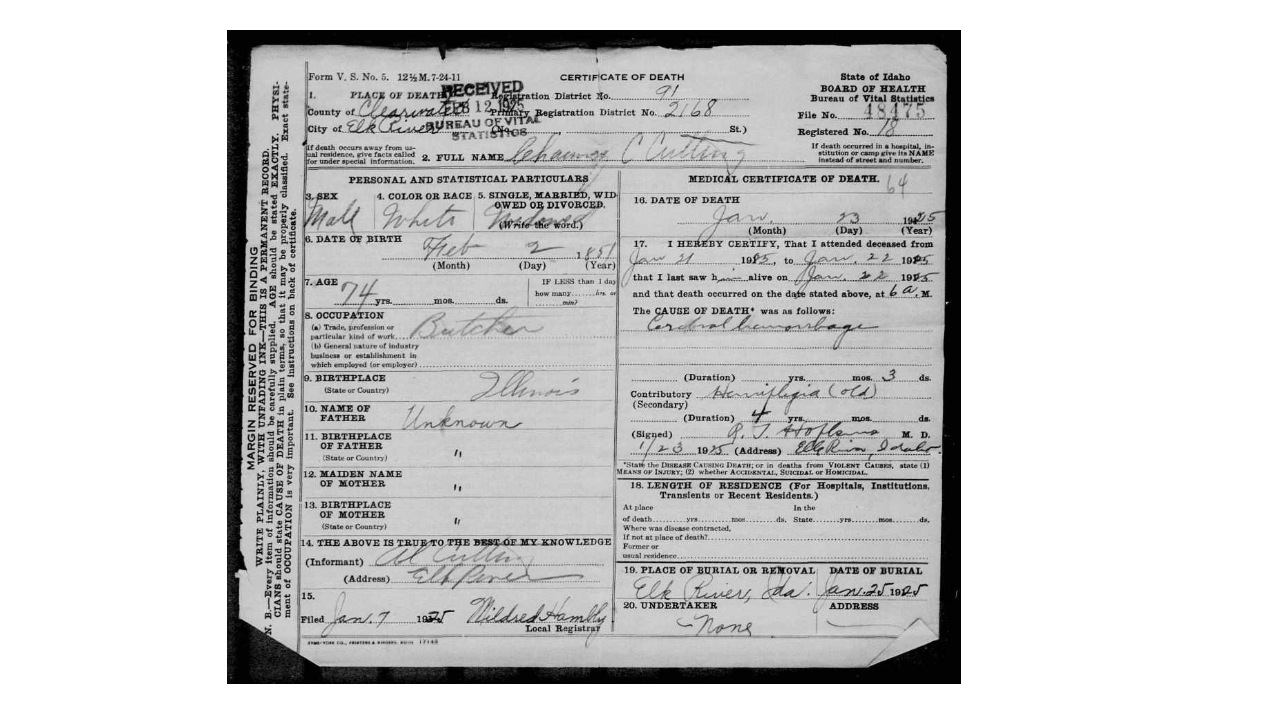 MARGIN RESERVED FOR BINDING
WRITE PLAINLY, WITH UNFADING INK—THIS IS A PERMANENT RECORD.
N. B.—Every item of information should be carefully supplied. AGE should be stated EXACTLY. PHYSI-
CIANS should state CAUSE OF DEATH in plain terms, so that it may be properly classified. Exact state-
ment of OCCUPATION is very important. See instructions on back of certificate.
Form V. S. No. 5. 12½M. 7-24-11
CERTIFICATE OF DEATH
State of Idaho
BOARD OF HEALTH
Bureau of Vital Statistics
File No. 48475
Registered No. 78
If death occurred in a hospital, in-
stitution or camp give its NAME
instead of street and number.
1. PLACE OF DEATH
RECEIVED
FEB 12 1925
BUREAU OF VITAL
STATISTICS
Registration District No. 91
County of Clearwater
Primary Registration District No. 2168
City of Elk River
(No. St.)
If death occurs away from us-
ual residence, give facts called
for under special information.
2. FULL NAME Chauncy C Cutting
PERSONAL AND STATISTICAL PARTICULARS
3. SEX
Male
4. COLOR OR RACE
White
5. SINGLE, MARRIED, WID-
OWED OR DIVORCED.
Widowed
(Write the word.)
6. DATE OF BIRTH
Feb 2 1851
(Month) (Day) (Year)
7. AGE
74 yrs. mos. ds.
IF LESS than 1 day
how many hrs. or
min?
8. OCCUPATION
(a) Trade, profession or
particular kind of work Butcher
(b) General nature of industry
business or establishment in
which employed (or employer)
9. BIRTHPLACE
(State or Country) Illinois
10. NAME OF
FATHER Unknown
11. BIRTHPLACE
OF FATHER "
(State or Country)
12. MAIDEN NAME
OF MOTHER "
13. BIRTHPLACE
OF MOTHER "
(State or Country)
14. THE ABOVE IS TRUE TO THE BEST OF MY KNOWLEDGE
(Informant) Al Cutting
(Address) Elk River
15.
Filed Jan. 7 1925 Mildred Hambly
Local Registrar
MEDICAL CERTIFICATE OF DEATH. 64
16. DATE OF DEATH
Jan. 23 1925
(Month) (Day) (Year)
17. I HEREBY CERTIFY, That I attended deceased from
Jan 21 1925, to Jan. 22 1925
that I last saw him alive on Jan. 22 1925
and that death occurred on the date stated above, at 6 a. M.
The CAUSE OF DEATH* was as follows:
Cerebral hemorrhage
(Duration) yrs. mos. 3 ds.
Contributory Hemiplegia (old)
(Secondary)
(Duration) 4 yrs. mos. ds.
(Signed) R. T. Hopkins M. D.
1/23 1925 (Address) Elk River, Idaho.
*State the DISEASE CAUSING DEATH; or in deaths from VIOLENT CAUSES, state (1)
MEANS OF INJURY; (2) whether ACCIDENTAL, SUICIDAL OR HOMICIDAL.
18. LENGTH OF RESIDENCE (For Hospitals, Institutions,
Transients or Recent Residents.)
At place In the
of death yrs. mos. ds. State yrs. mos. ds.
Where was disease contracted,
If not at place of death?
Former or
usual residence
19. PLACE OF BURIAL OR REMOVAL
Elk River, Ida.
DATE OF BURIAL
Jan. 25 1925
20. UNDERTAKER
None
ADDRESS